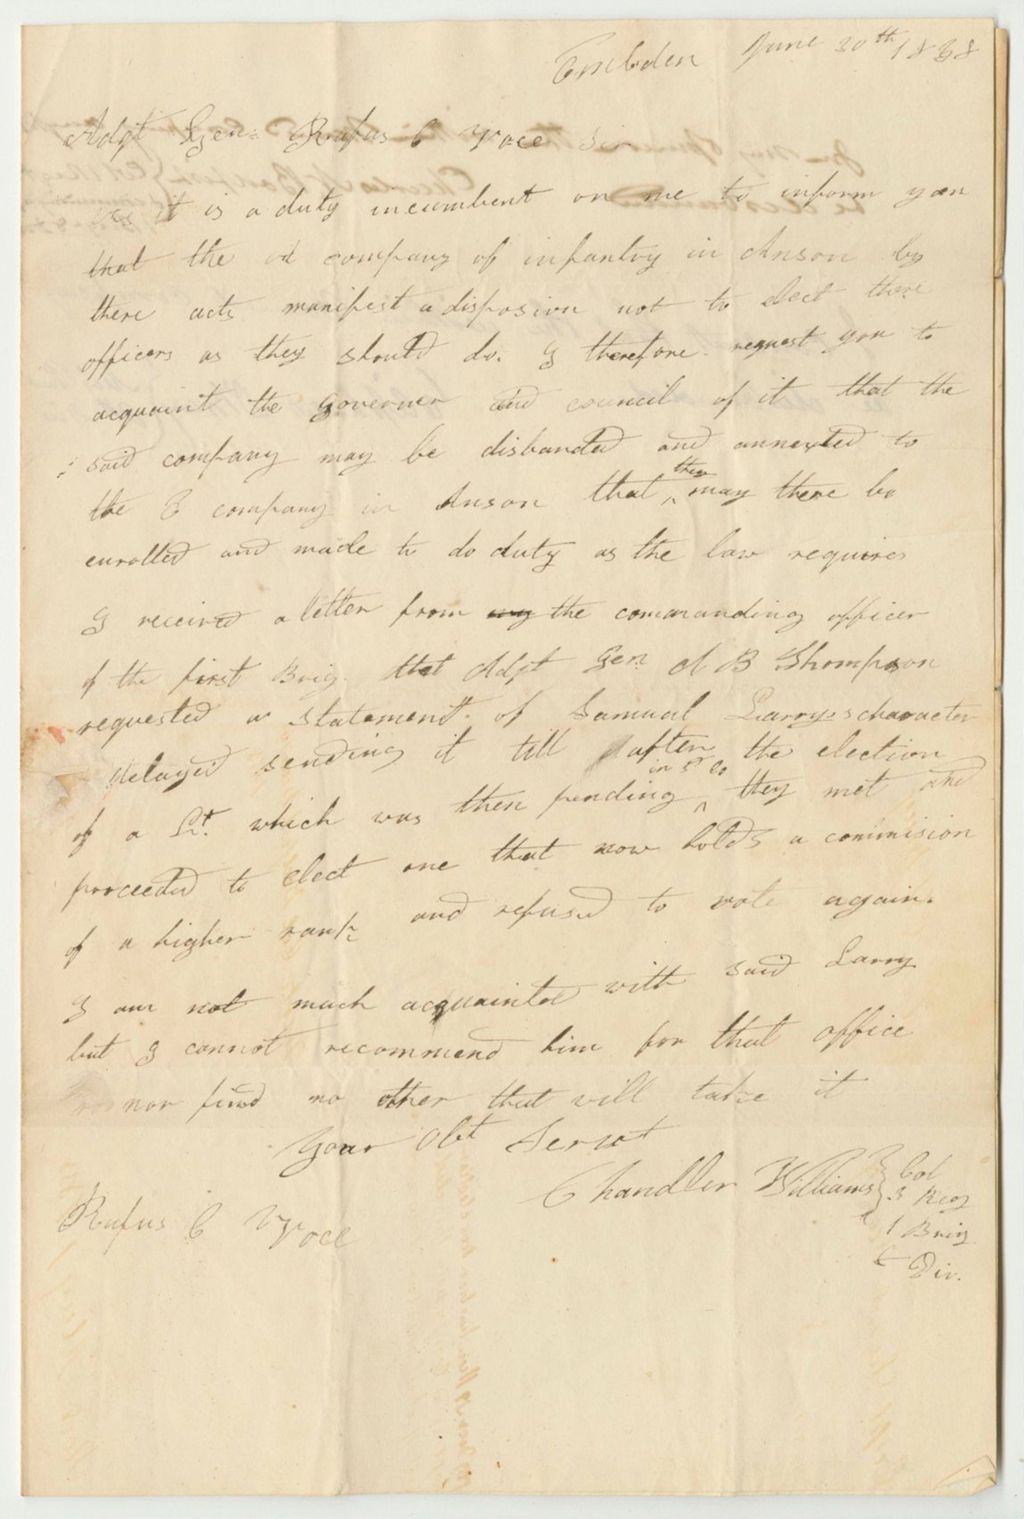 Embden June 30th 1838
Adgt Gen. Rufus C Vose Sir
As it is a duty incumbent on me to inform you
that the company of infantry in Anson by
there acts manifest a disposion not to elect there
officers as they should do. I therefore request you to
acquaint the governer and council of it that the
said company may be disbanded and annexted to
the B company in Anson that they may there be
enrolled and made to do duty as the law requires
I received a letter from my the commanding officer
of the first Brig. that Adgt Gen A B Thompson
requested a statement of Samuel Larry,s character
delayed sending it till after the election
of a Lt. which was then pending in sd Co they met and
proceeded to elect one that now holds a commision
of a higher rank and refused to vote again.
I am not much acquainted with said Larry
but I cannot recommend him for that office
nor find no other that will take it
Your Obt Servt
Chandler Williams Col
3 Reg
1 Brig
Div.
Rufus C Vose